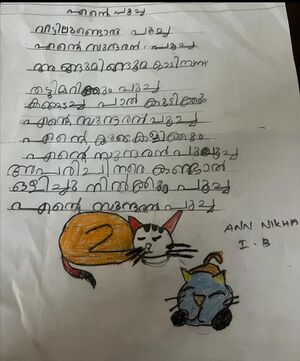 എന്റെ പൂച്ച
വീട്ടിലുണ്ടൊരു പൂച്ച
എന്റെ സുന്ദരൻ പൂച്ച
അങ്ങുമിങ്ങുമോടിനടന്ന്
തട്ടിമറിക്കും പൂച്ച
കണ്ണടച്ചു പാൽ കുടിക്കും
എന്റെ സുന്ദരൻ പൂച്ച
എന്റെ കൂടെ കളിക്കും
എന്റെ സുന്ദരൻ പൂച്ച
അപരിചിതരെ കണ്ടാൽ
ഒളിച്ചു നിൽക്കും പൂച്ച
എന്റെ സുന്ദരൻ പൂച്ച
ANN NIKHA
I. B